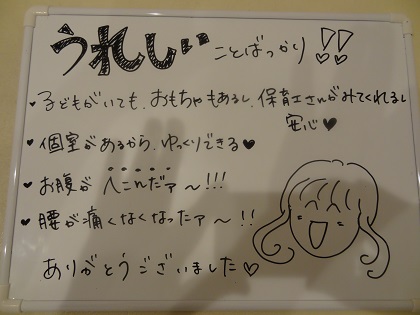 うれしい ことばっかり!!
♥子どもがいても、おもちゃもあるし、保育士さんがみてくれるし
安心♥
♥個室があるから、ゆっくりできる♥
♥お腹がへこんだァ〜!!!
♥腰が痛くなくなったァ〜!!
ありがとうございました♡